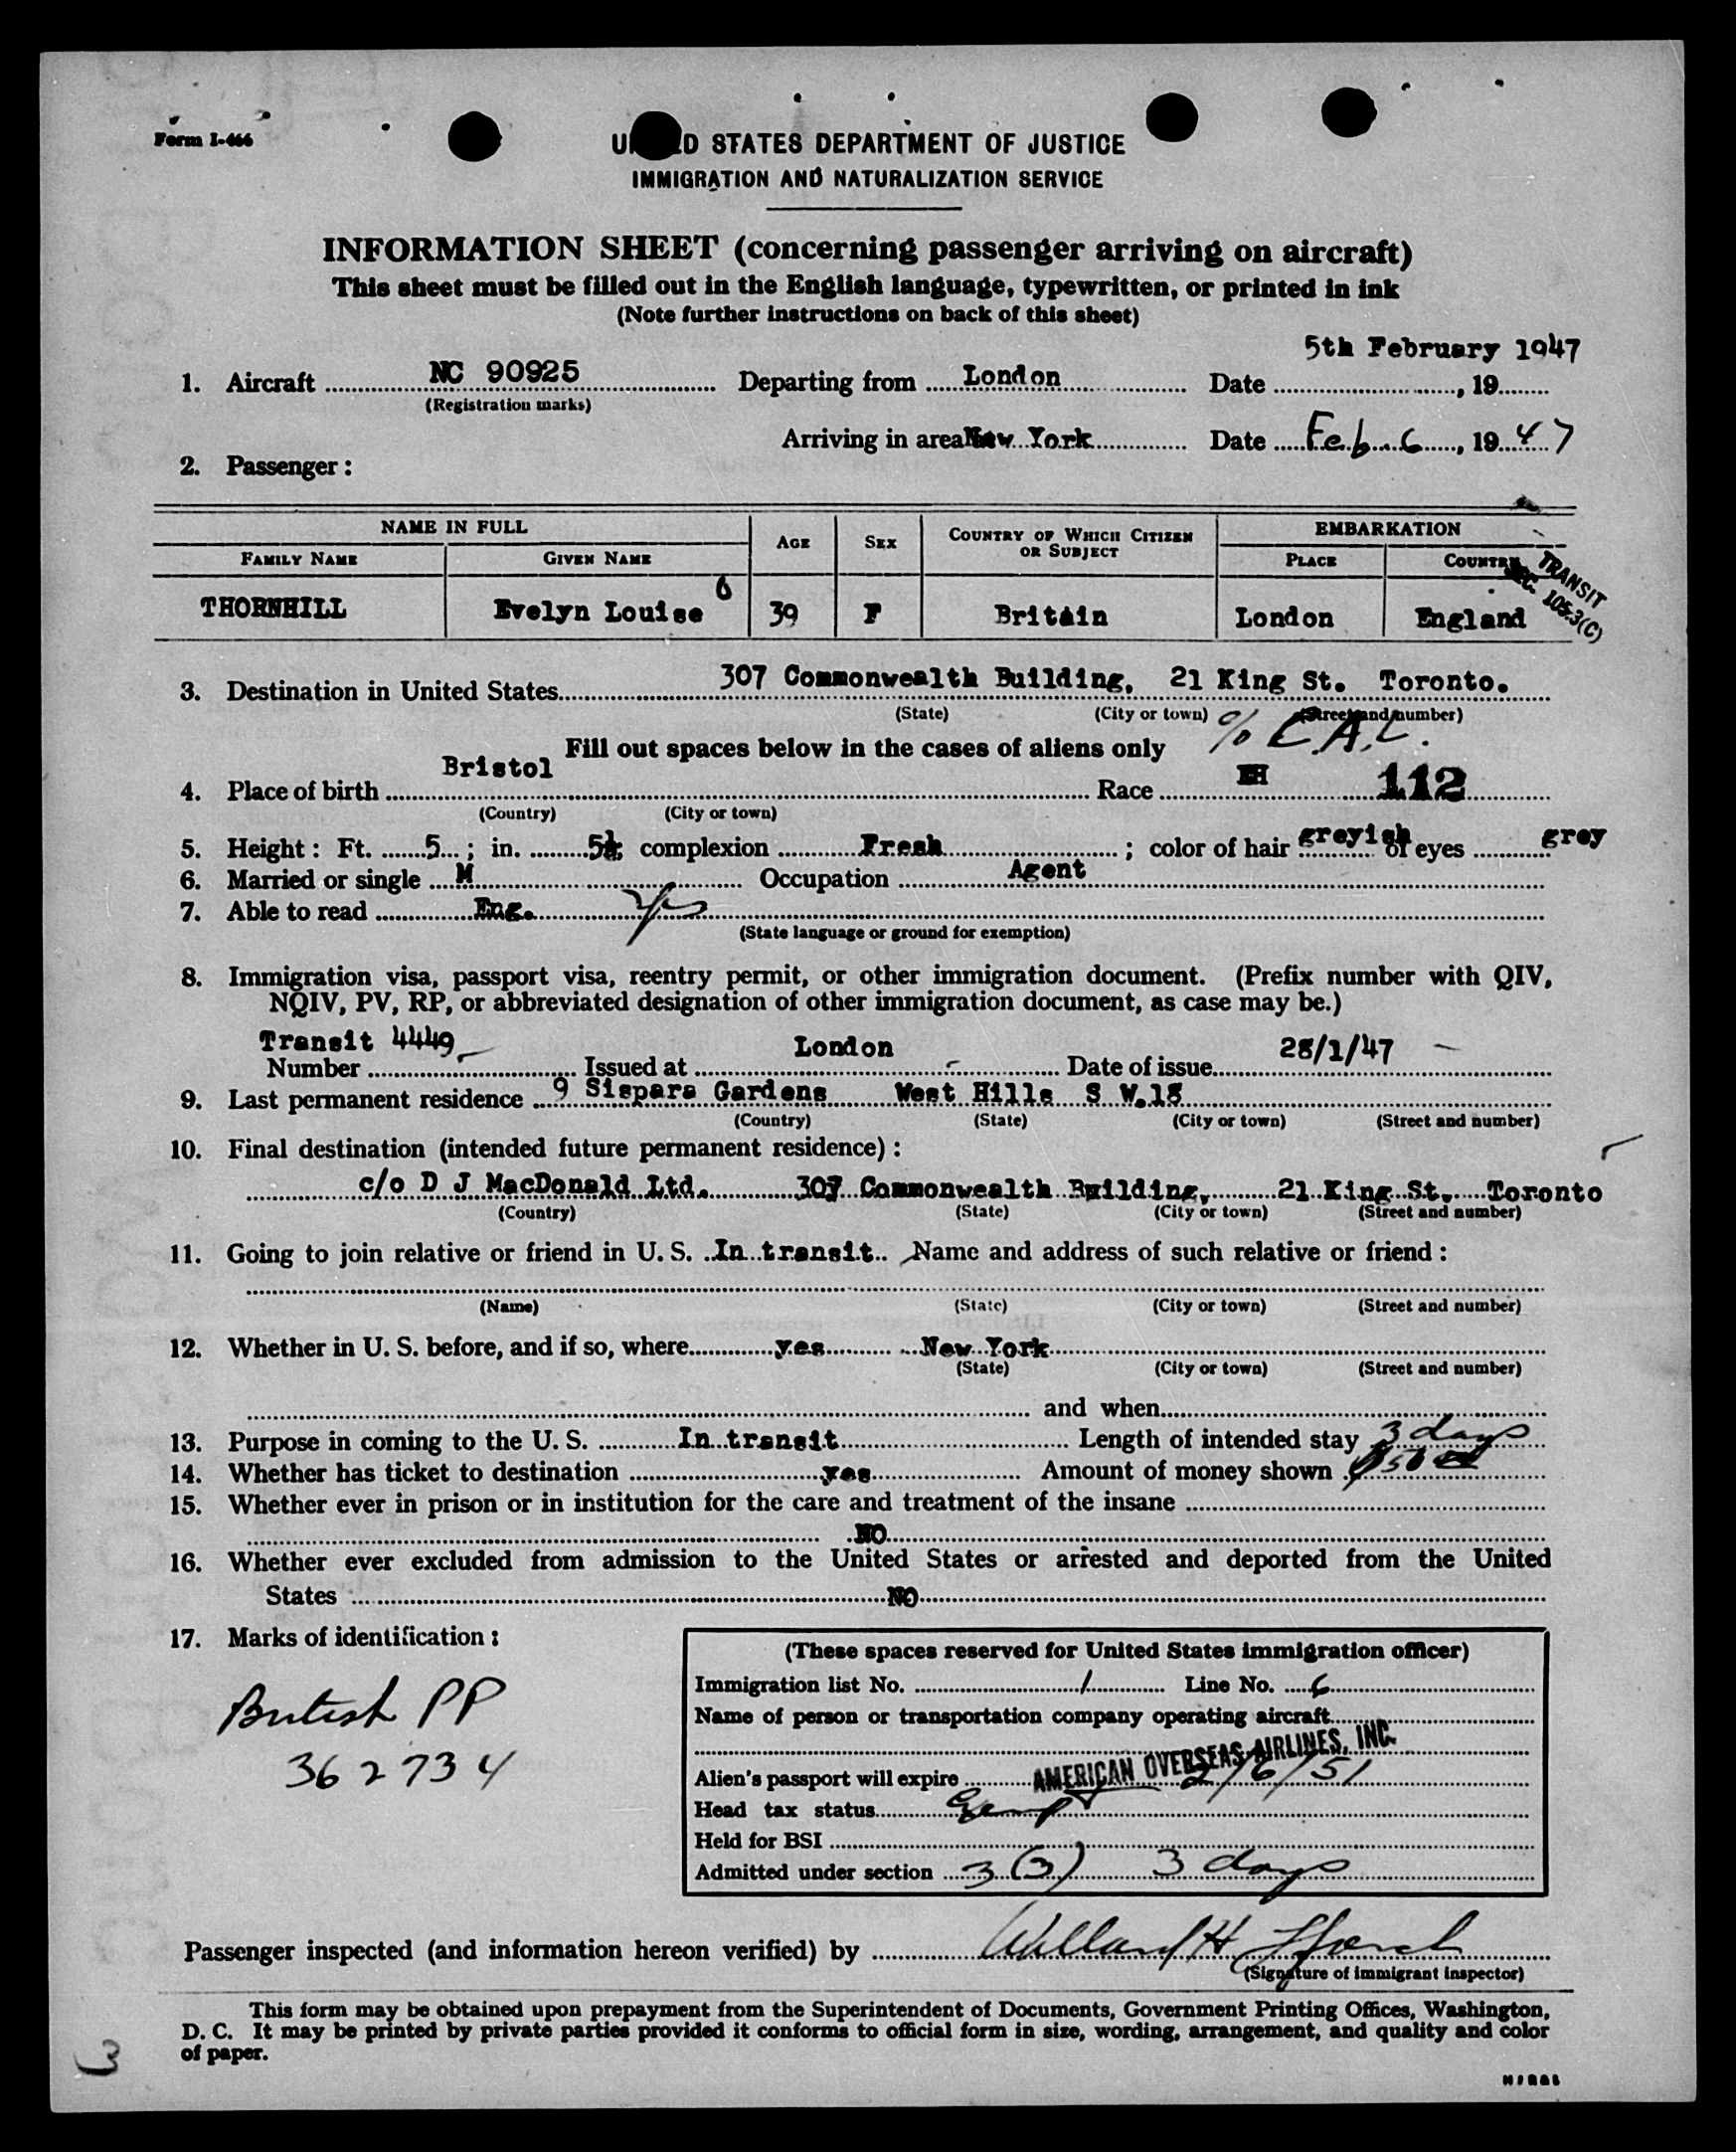 Form I-466
UNITED STATES DEPARTMENT OF JUSTICE
IMMIGRATION AND NATURALIZATION SERVICE
INFORMATION SHEET (concerning passenger arriving on aircraft)
This sheet must be filled out in the English language, typewritten, or printed in ink
(Note further instructions on back of this sheet)
5th February 1947
1. Aircraft NC 90925 Departing from London Date , 19
(Registration marks)
Arriving in area New York Date Feb. 6, 19 47
2. Passenger:
NAME IN FULL AGE SEX COUNTRY OF WHICH CITIZEN OR SUBJECT EMBARKATION
FAMILY NAME GIVEN NAME PLACE COUNTRY
TRANSIT
SEC. 105.3(C)
6
THORNHILL Evelyn Louise 39 F Britain London England
3. Destination in United States 307 Commonwealth Building, 21 King St. Toronto.
(State) (City or town) (Street and number)
Fill out spaces below in the cases of aliens only
4. Place of birth Bristol Race 112
(Country) (City or town)
5. Height: Ft. 5; in. 5½; complexion Fresh; color of hair greyish of eyes grey
6. Married or single M Occupation Agent
7. Able to read Eng. Yes
(State language or ground for exemption)
8. Immigration visa, passport visa, reentry permit, or other immigration document. (Prefix number with QIV,
NQIV, PV, RP, or abbreviated designation of other immigration document, as case may be.)
Transit 4449 London 28/1/47
Number Issued at Date of issue
9. Last permanent residence 9 Sispara Gardens West Hills S W.18
(Country) (State) (City or town) (Street and number)
10. Final destination (intended future permanent residence):
c/o D J MacDonald Ltd. 307 Commonwealth Building, 21 King St. Toronto
(Country) (State) (City or town) (Street and number)
11. Going to join relative or friend in U. S. In transit Name and address of such relative or friend:
(Name) (State) (City or town) (Street and number)
12. Whether in U. S. before, and if so, where yes New York
(State) (City or town) (Street and number)
and when
13. Purpose in coming to the U. S. In transit Length of intended stay 3 days
14. Whether has ticket to destination yes Amount of money shown
15. Whether ever in prison or in institution for the care and treatment of the insane
NO
16. Whether ever excluded from admission to the United States or arrested and deported from the United
States NO
17. Marks of identification:
British PP
362734
(These spaces reserved for United States immigration officer)
Immigration list No. 1 Line No. 6
Name of person or transportation company operating aircraft
AMERICAN OVERSEAS AIRLINES, INC.
Alien's passport will expire 2/6/51
Head tax status Exempt
Held for BSI
Admitted under section 3(3) 3 days
Passenger inspected (and information hereon verified) by Willard H
(Signature of immigrant inspector)
This form may be obtained upon prepayment from the Superintendent of Documents, Government Printing Offices, Washington,
D. C. It may be printed by private parties provided it conforms to official form in size, wording, arrangement, and quality and color
of paper.
3